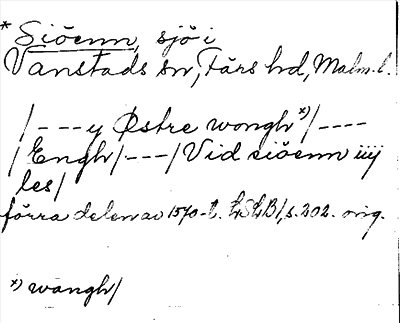 * Siöenn, sjö i
Vanstads sn, Färs hd, Malm. l.
/---y Østre wongh*)/----
/Engh/---/Vid siöenn iiij
les/
förra delen av 1570-t. LSLB/, s. 202. orig.
*) wångh/